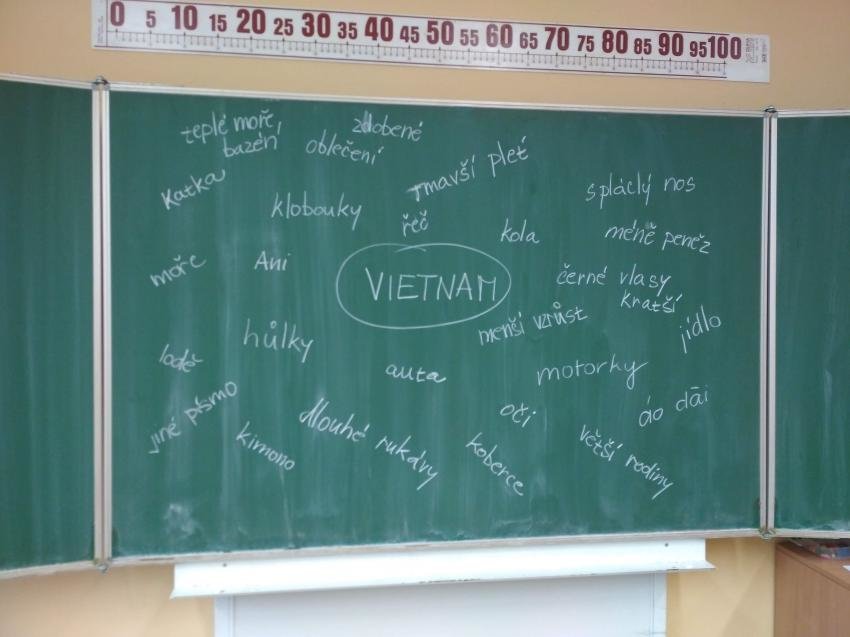 0 5 10 15 20 25 30 35 40 45 50 55 60 65 70 75 80 85 90 95 100
teplé moře
bazén
zdobené
oblečení
tmavší pleť
spláclý nos
Katka
klobouky
řeč
kola
méně peněz
moře
Ani
VIETNAM
černé vlasy
kratší
menší vzrůst
jídlo
hůlky
lodě
auta
motorky
jiné písmo
dlouhé rukávy
oči
áo dāi
kimono
koberce
větší rodiny